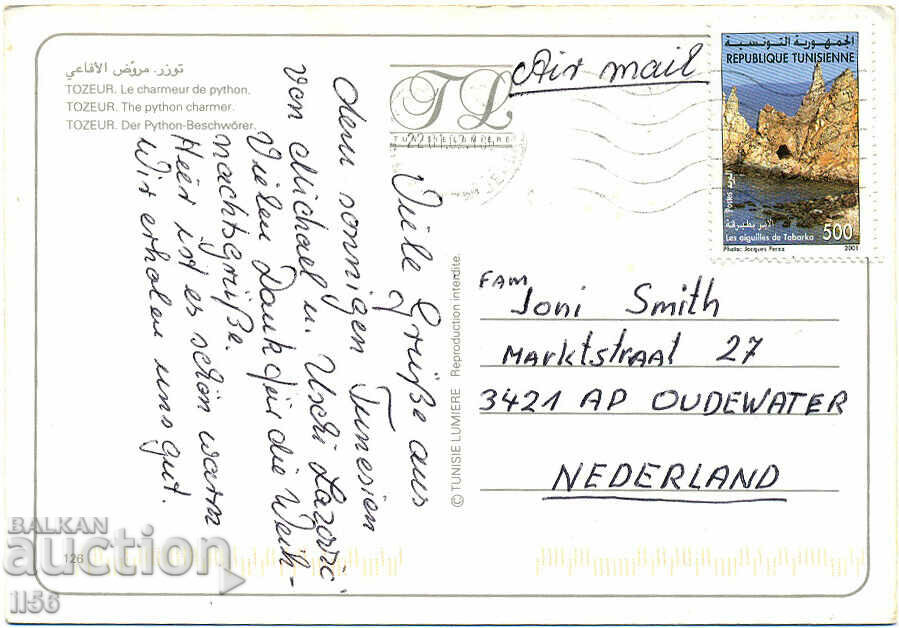 توزر. مروّض الأفاعي
TOZEUR. Le charmeur de python.
TOZEUR. The python charmer.
TOZEUR. Der Python-Beschwörer.
TL
TUNISIE LUMIERE
Air mail
الجمهورية التونسية
REPUBLIQUE TUNISIENNE
Postes البريد
الإبر بطبرقة
Les aiguilles de Tabarka
500
Photo: Jacques Perez
2001
Viele Grüße aus
dem sonnigen Tunesien
von Michael u. Uschi Lazovic
Vielen Dank für die Weih-
nachtsgrüße.
Heir ist es schön warm
Wir erholen uns gut.
© TUNISIE LUMIERE Reproduction interdite.
FAM
Joni Smith
Marktstraat 27
3421 AP OUDEWATER
NEDERLAND
126
BALKAN
auction
1156